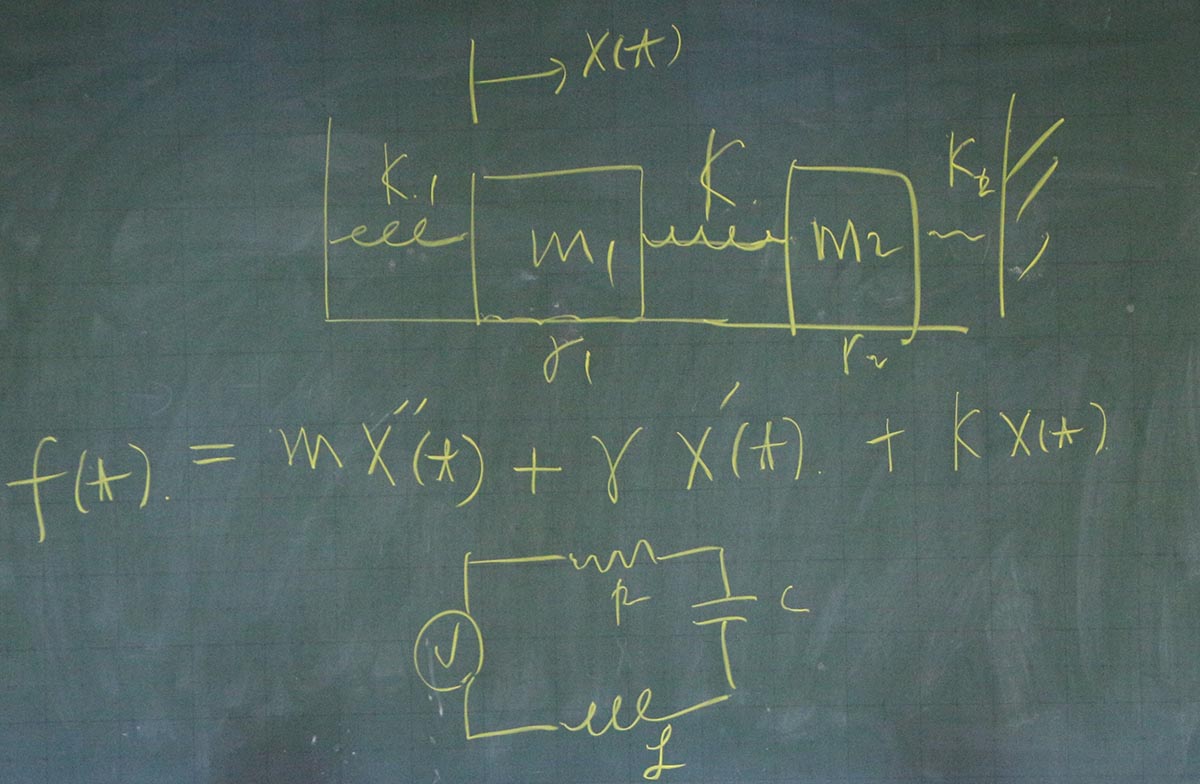 x(t)
K1 K K2
m1 m2
γ1 r2
f(t) = m x''(t) + γ x'(t) + k x(t)
R C
V
L